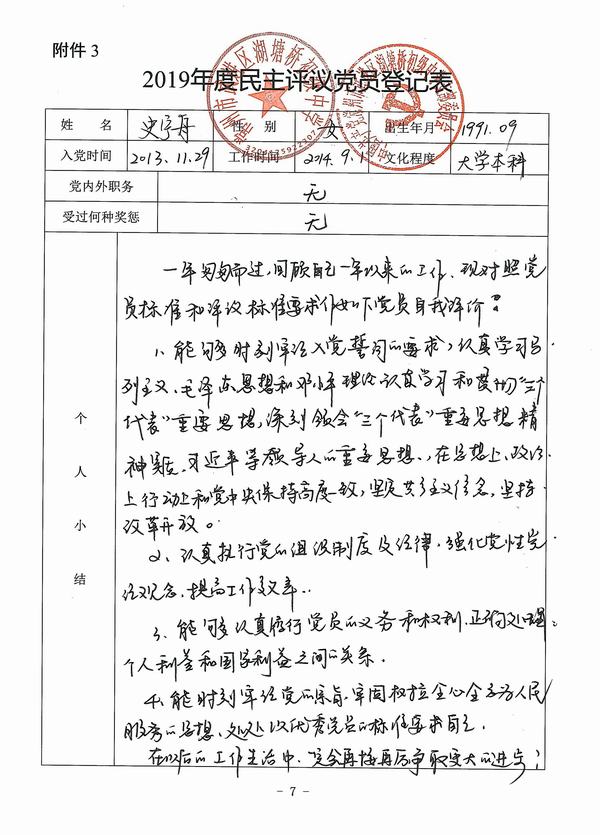 附件 3
2019年度民主评议党员登记表
姓 名 史宇丹 性 别 女 出生年月 1991.09
入党时间 2013.11.29 工作时间 2014.9.1 文化程度 大学本科
党内外职务 无
受过何种奖惩 无
个人小结
一年匆匆而过,回顾自己一年以来的工作、现对照党
员标准和评议标准要求作如下党员自我评价:
1、能够时刻牢记入党誓词的要求,认真学习马
列主义、毛泽东思想和邓小平理论认真学习和贯彻"三个
代表"重要思想,深刻领会"三个代表"重要思想精
神实质、习近平等领导人的重要思想、,在思想上、政治
上行动上和党中央保持高度一致,坚定共产主义信念,坚持
改革开放。
2、认真执行党的组织制度及纪律,强化党性党
纪观念、提高工作效率..
3、能够认真履行党员的义务和权利、正确处理
个人利益和国家利益之间的关系.
4、能时刻牢记党的宗旨、牢固树立全心全意为人民
服务的思想、处处以优秀党员的标准要求自己.
在以后的工作生活中、定会再接再厉争取更大的进步;
- 7 -